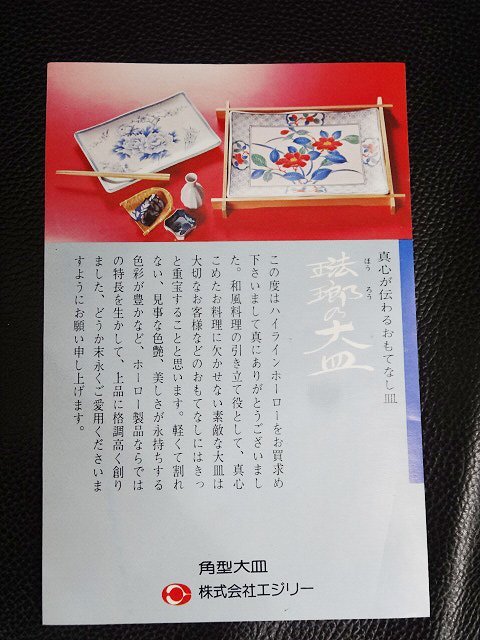 真心が伝わるおもてなし皿
ほうろう
琺瑯の大皿
この度はハイラインホーローをお買求め
下さいまして真にありがとうございまし
た。和風料理の引き立て役として、真心
こめたお料理に欠かせない素敵な大皿は
大切なお客様などのおもてなしにはきっ
と重宝することと思います。軽くて割れ
ない、見事な色艶、美しさが永持ちする
色彩が豊かなど、ホーロー製品ならでは
の特長を生かして、上品に格調高く創り
ました、どうか末永くご愛用くださいま
すようにお願い申し上げます。
角型大皿
株式会社エジリー